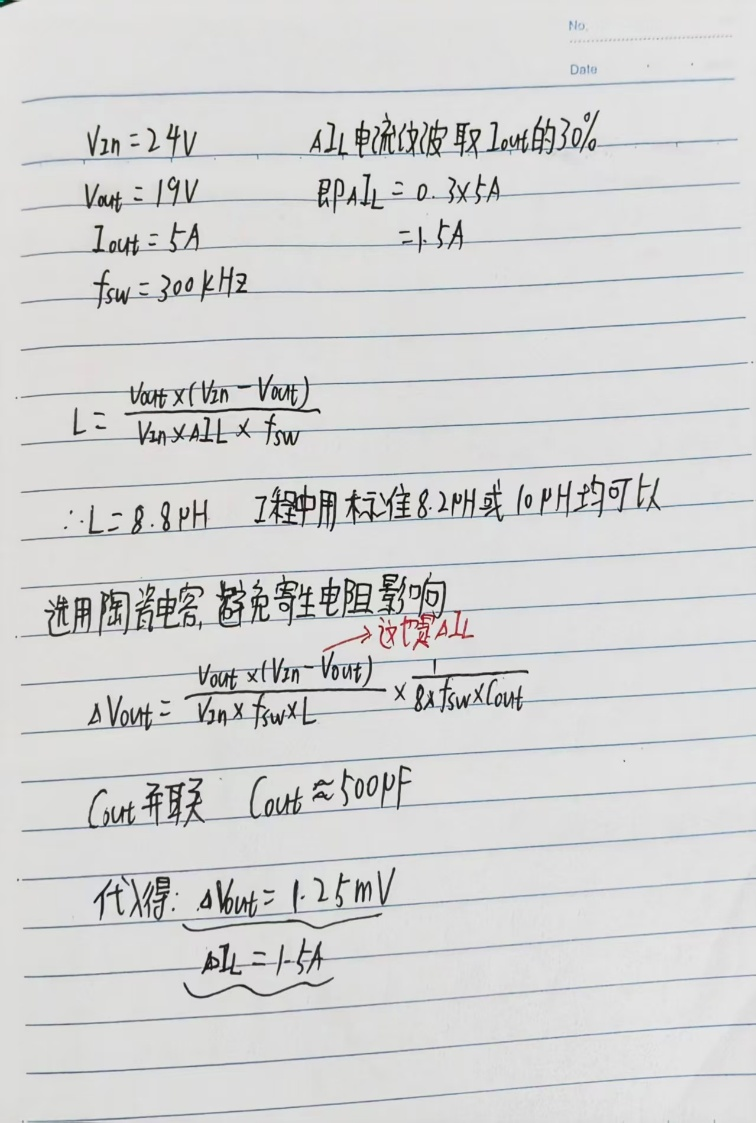 No.
Date
VIn = 24V ΔIL电流纹波取Iout的30%
Vout = 19V 即ΔIL = 0.3×5A
Iout = 5A =1.5A
fsw = 300kHz
L = Vout×(VIn-Vout) / VIn×ΔIL×fsw
∴L = 8.8μH 工程中用标准8.2μH或10μH均可以
选用陶瓷电容,避免寄生电阻影响
→这也是ΔIL
ΔVout = Vout×(VIn-Vout) / VIn×fsw×L × 1 / 8×fsw×Cout
Cout并联 Cout≈500μF
代入得: ΔVout = 1.25mV
ΔIL = 1.5A